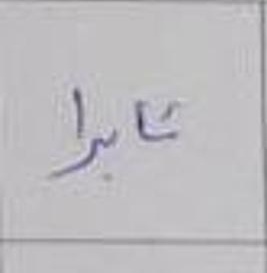 ثابرا